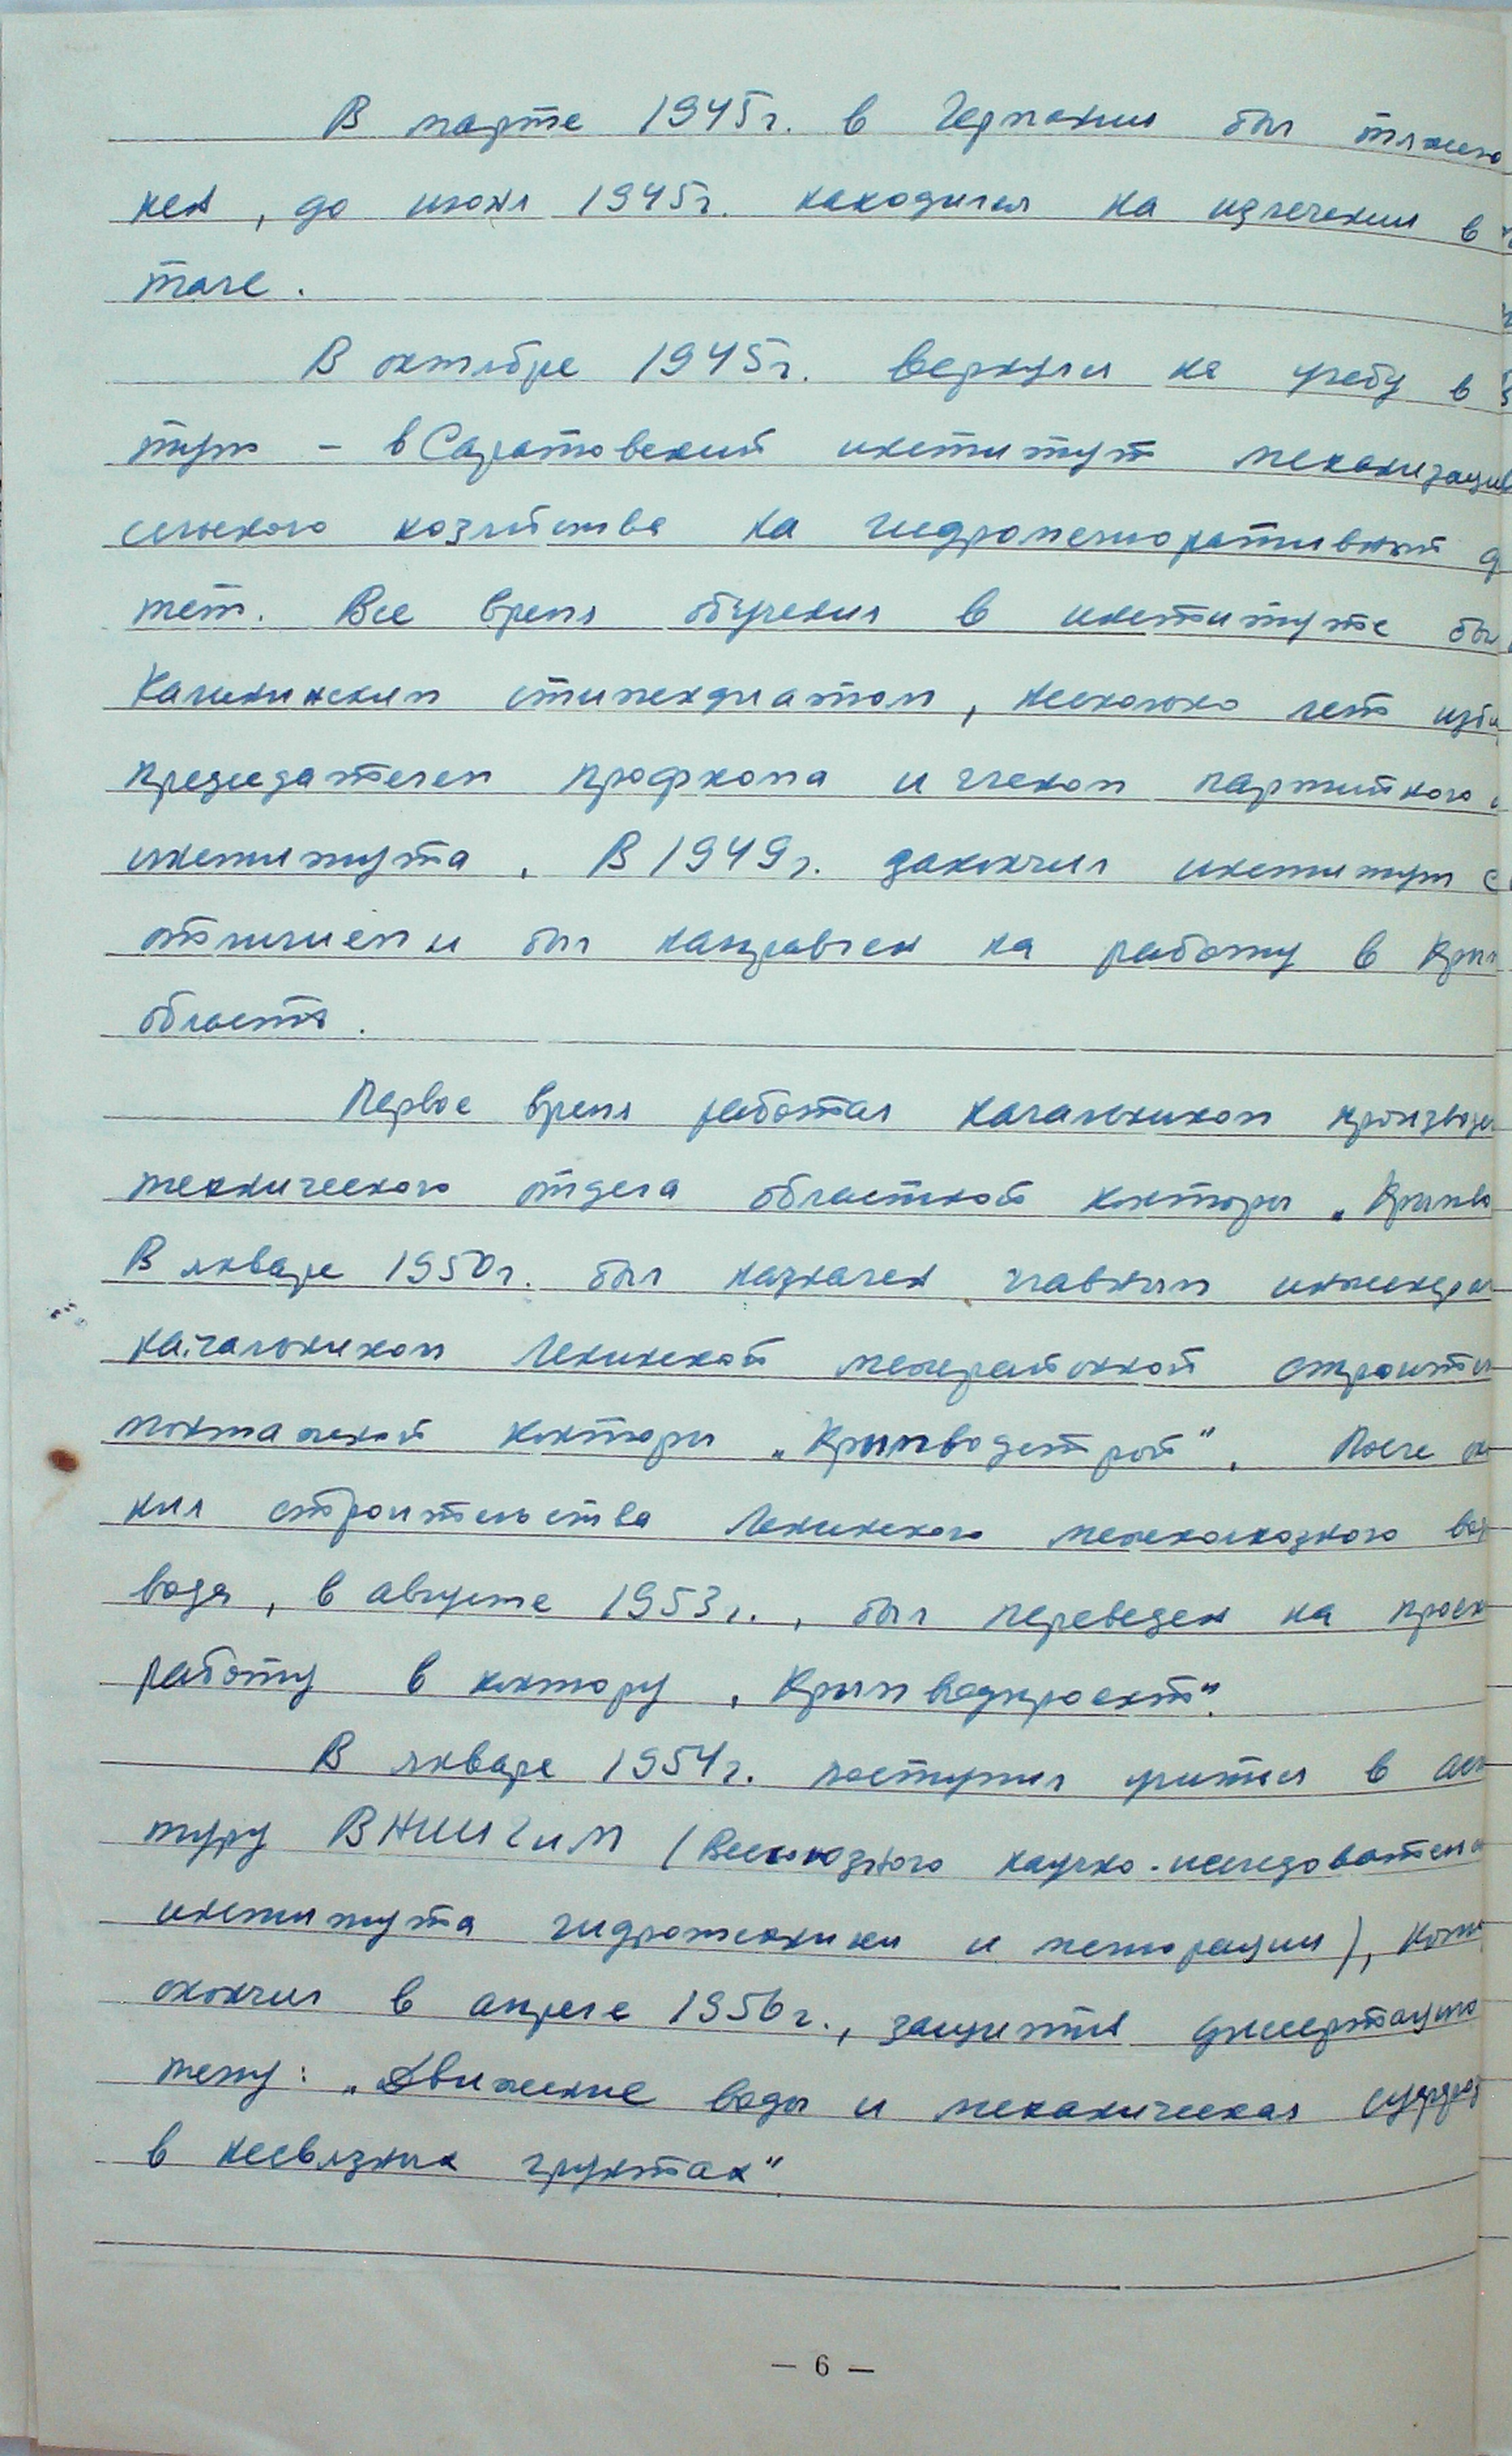 В марте 1945г. в Германии был тяжело
нен, до июня 1945г. находился на излечении в
тале.
В октябре 1945г. вернулся на учебу в
туры – в Саратовский институт механизации
сельского хозяйства на гидромелиоративный ф
тет. Все время обучения в институте был
Калининским стипендиатом, несколько лет изби
председателем профкома и членом партийного
института. В 1949г. закончил институт с
отличием и был направлен на работу в Крым
область.
Первое время работал начальником производ
технического отдела областной конторы „Крымво
В январе 1950г. был назначен главным инженером
начальником Ленинской межрайонной строител
монтажной конторы „Крымводстрой“. После ок
ния строительства Ленинского межколхозного вод
вода, в августе 1953г., был переведен на проек
работу в контору „Крымводпроект“.
В январе 1954г. поступил учиться в асп
туру ВНИИГиМ (Всесоюзного научно-исследовательс
института гидротехники и мелиорации), кото
окончил в апреле 1956г., защитив диссертацию
тему: „Движение воды и механическая суффоз
в несвязных грунтах“.
— 6 —